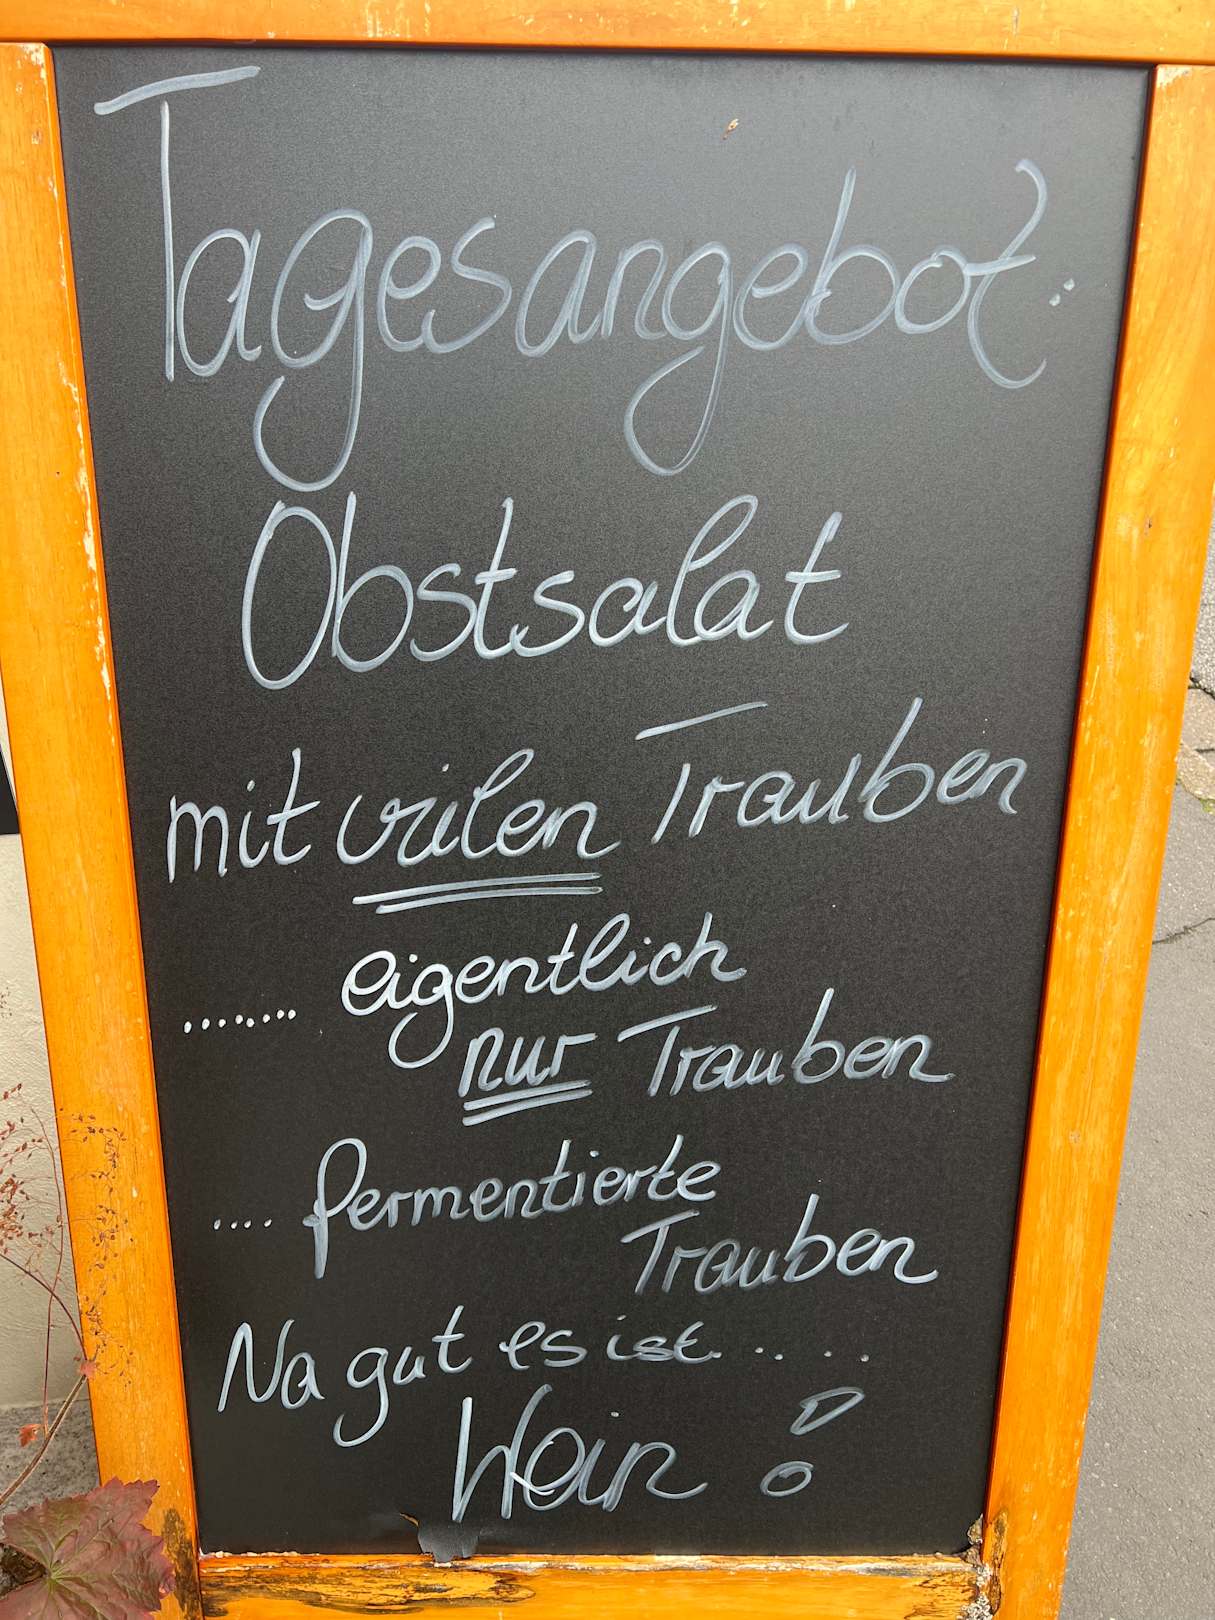 Tagesangebot:
Obstsalat
mit vielen Trauben
....... eigentlich
nur Trauben
.... fermentierte
Trauben
Na gut es ist ... ..
Wein!